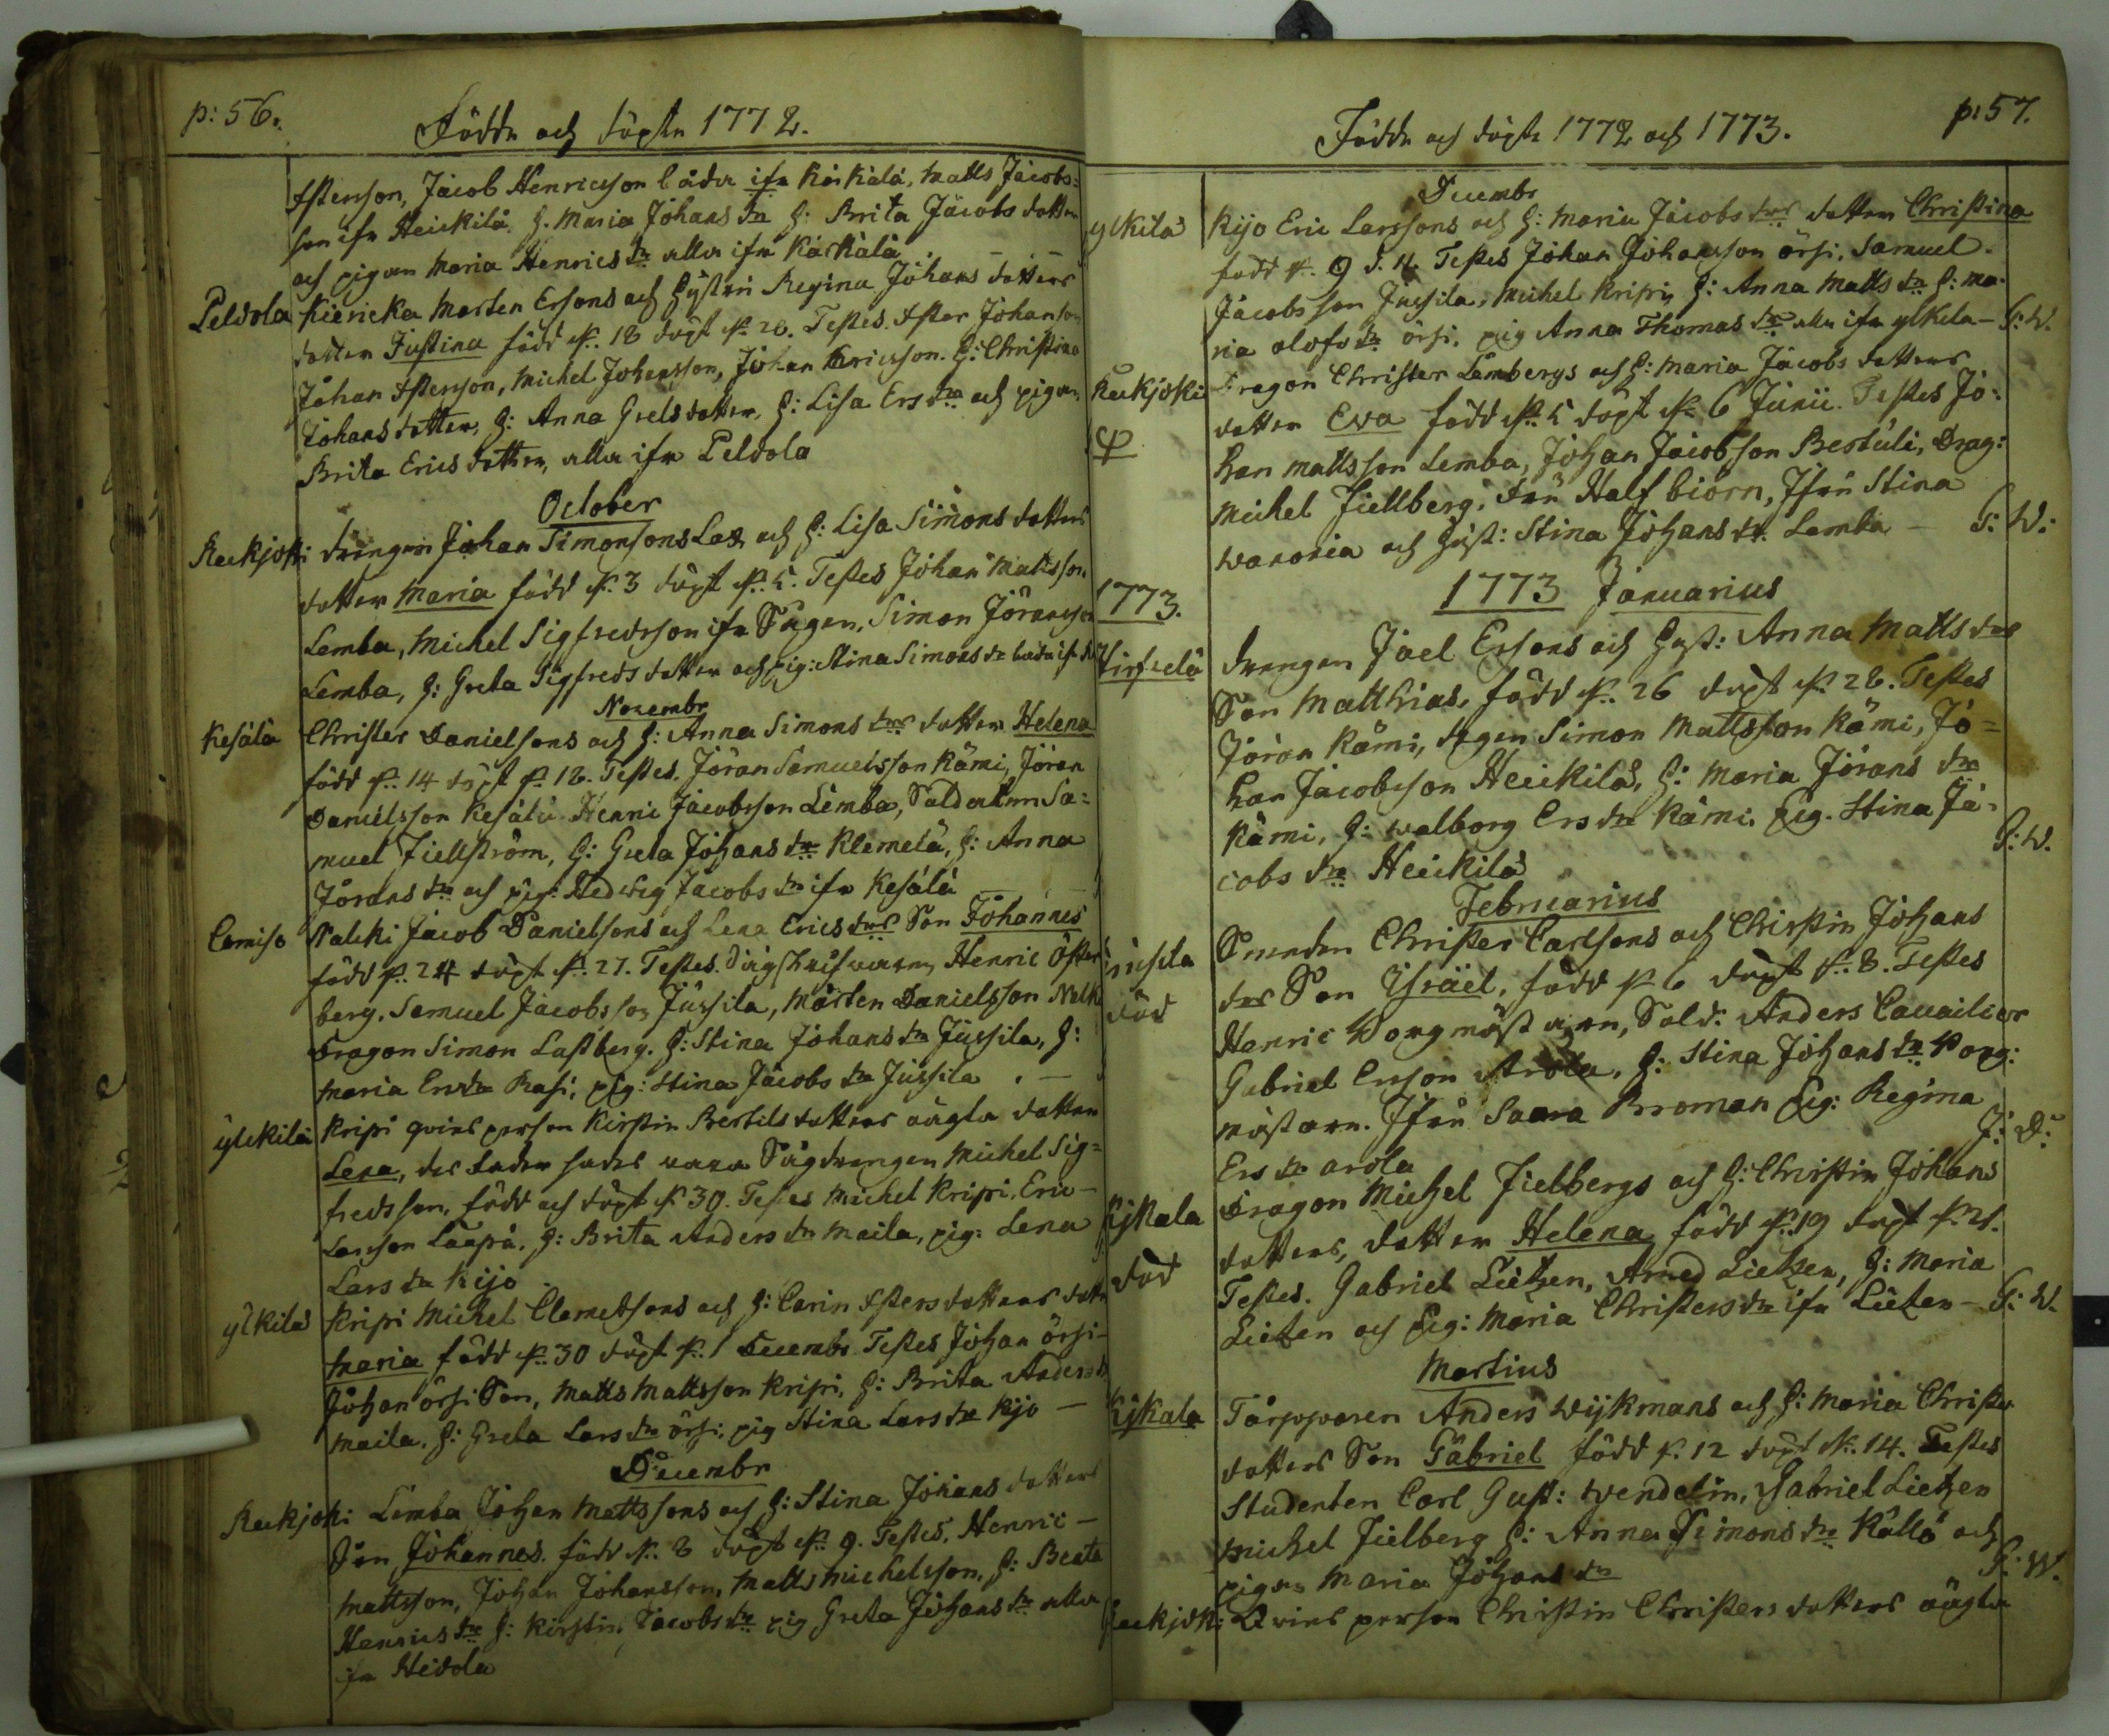 p: 56.
Födde och döpte 1772.
Ifterson, Jacob Henricsson båda ifr Kärkälä, Matts Jacobs=
son ifr Heickilä, h. Maria Johans dr h: Brita Jacobs dotter
och pigan Maria Henrics dr alla ifr Karkälä
Peldola Kiericka Morten Ersons och hustru Regina Johans dotters
dotter Justina född d. 18 döpt d. 20. Testes. Johanson
Johan Michel Johansson, Johan Ericsson. h: Christina
Johans dotter, h: Anna Grels dotter, h: Lisa Ers dr och pigan
Brita Erics dotter, alla ifr Peldola
October
Reckjoki drengen Johan Simonsons Lax och h: Lisa Simons dotters
dotter Maria född d. 3 döpt d. 5. Testes Johan Mattsson
Lemba, Michel Sigfredsson ifr Sågen, Simon Jöransson
Lemba, h: Greta Sigfreds dotter och pig: Stina Simons dr
Novembr
Kesälä Christer Danielsons och h: Anna Simons drs dotter Helena
född d. 14 döpt d. 18. Testes. Jöran Samuelsson Kämi, Jöran
Danielsson Kesälä Henric Jacobsson Lemba, Soldaten Sa=
muel Fiellström, h: Greta Johans dr Klemelä, h: Anna
Jörans dr och pig: Hedwig Jacobs dr ifr Kesälä
Comiso Nalcki Jacob Danielsons och Lena Erics drs Son Johannes
född d. 24 döpt d. 27. Testes. Henric Öster
berg. Samuel Jacobsson Jussila, Mårten Danielsson Nalk
Dragon Simon Lastberg. h: Stina Johans dr Jussila, h:
Maria Ers dr Rasi, pig: Stina Jacobs dr Jussila
ylckilä Kripi qvins person Kirstin Bertils dotters oägta dotter
Lena, des fader sades vara Sågdrengen Michel Sig=
fredsson, född och döpt d 30. Testes Michel Kripi, Eric
Larsson Laupa. h: Brita Anders dr Maila, pig: Lena
Lars dr Kijo
ylkilä Kripi Michel Clemetsons och h: Carin dotters dottr
Maria född d. 30 döpt d. 1 Decembr Testes Johan örsi
Johan örsi Son, Matts Mattsson Kripi, h: Brita Anders d
Maila. h: Greta Lars dr örsi, pig Stina Lars dr Kijo
Decembr
Reckjoki Lemba Johan Mattssons och h: Stina Johans dotters
Son Johannes. född d. 8 döpt d. 9. Testes, Henric
Mattsson, Johan Johansson, Matts Michelsson, h: Beata
Henrics dr h: Kirstin Jacobs dr pig Greta Johans dr alla
ifr Heidola
p: 57.
Födde och döpte 1772 och 1773.
Decembr
ylkilä Kijo Eric Larssons och h: Maria Jacobs drs dotter Christina
född d. 9 d. 11. Testes Johan Johansson örsi, Samuel
Jacobsson Jussila, Michel Kripi, h: Anna Matts dr h: Ma
ria olofs dr örsi, pig Anna Thomas dr alla ifr ylkela - G: W.
Reckjoki Dragon Christer Lembergs och h: Maria Jacobs dotters
dotter Eva född d. 5 döpt d. 6 Junii. Testes Jo=
han Mattsson Lemba, Johan Jacobsson Bertuli, Drag:
Michel Fiellberg, Fru Halfbiorn, Jfru Stina
Wanoria och hust: Stina Johans dr. Lemba G: W:
1773 Januarius
1773.
Hirfselä drengen Joel Ersons och hust: Anna Matts drs
Son Matthias, född d. 26 döpt d. 28. Testes
Jöran Kämi, drgen Simon Mattsson Kämi, Jo=
han Jacobsson Heickilä, h: Maria Jörans dr
Kämi, h: Walborg Ers dr Kämi. Pig. Stina Ja=
cobs dr Heickilä G: W.
Februarius
Jussila Smeden Christer Carlsons och Christin Johans
död drs Son Israël, född d. 6 döpt d. 8. Testes
Henric Worgmästaren, Sold: Anders Cavailier
Gabriel Ersson Arola, h: Stina Johans dr Worg:
mästaren. Jfru Saara Broman Pig: Regina
Ers dr arola J: D:
Kijkala Dragon Michel Fielbergs och h: Christin Johans
dotters, dotter Helena född d. 19 döpt d. 21.
död Testes. Gabriel Lietzen, Arved Lietzen, h: Maria
Lietzen och Pig: Maria Christers dr ifr Lietzen - G: W.
Martius
Kijkala Torpparen Anders Wijkmans och h: Maria Christer
dotters Son Gabriel född d. 12 döpt d. 14. Testes
Studenten Carl Gust: Wendelin, Gabriel Lietzen
Michel Fielberg h: Anna Simons dr Källö och
pigan Maria Johans dr G: W.
Reckjoki Qvins person Christin Christers dotters oägta